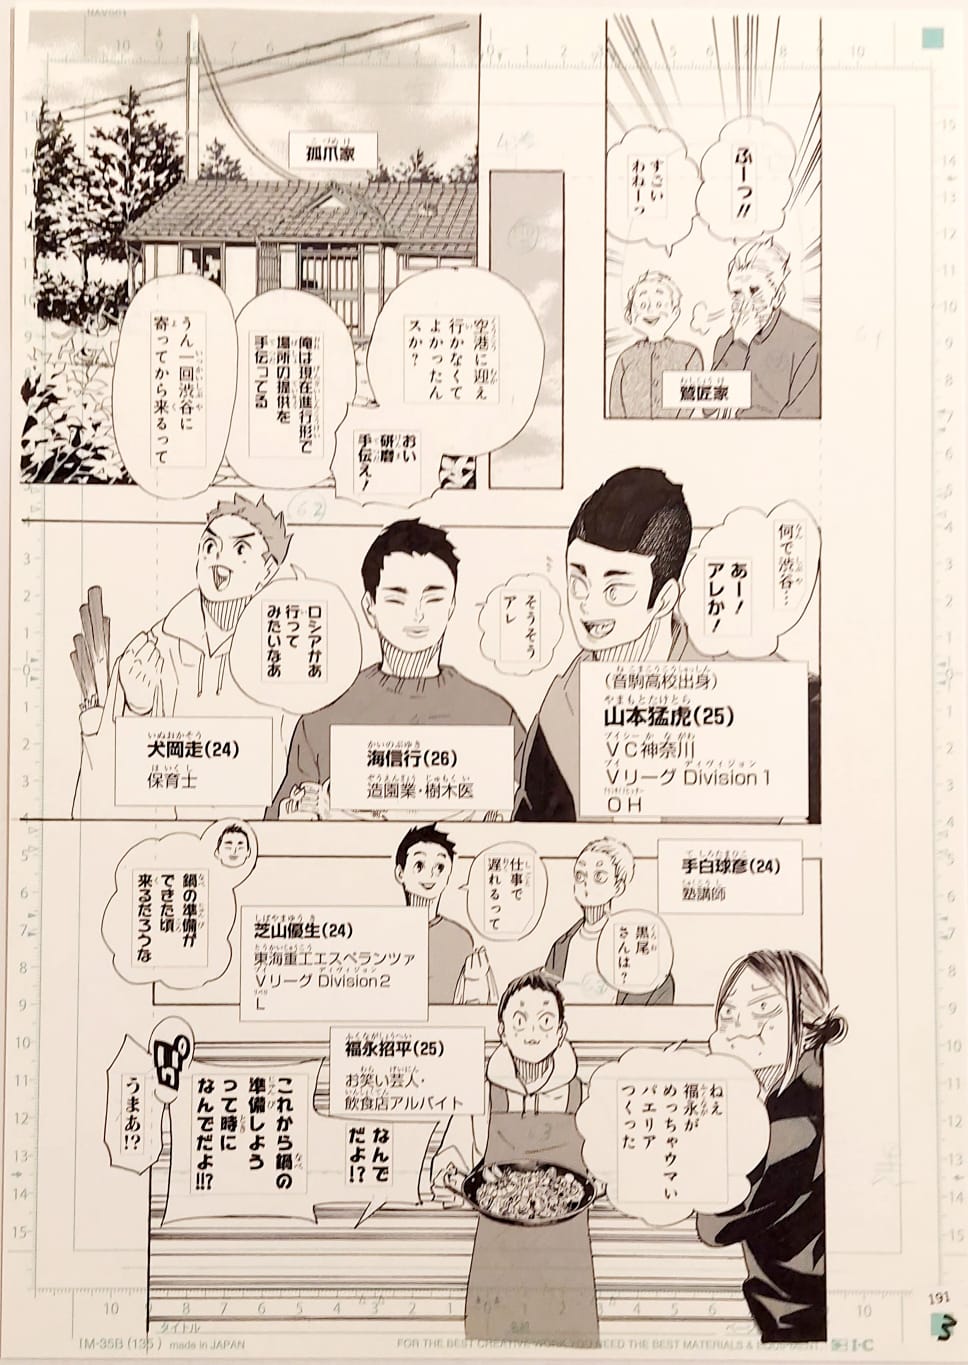 ふーっ!!
すごい
わねーっ
鷲匠家
孤爪家
空港に迎え
行かなくて
よかったん
スか?
おい
研磨
手伝え!
俺は現在進行形で
場所の提供を
手伝ってる
うん 一回渋谷に
寄ってから来るって
何で渋谷…
あー!
アレか!
そうそう
アレ
ロシアかあ
行って
みたいなあ
(音駒高校出身)
山本猛虎(25)
VC神奈川
Vリーグ Division1
OH
海信行(26)
造園業・樹木医
犬岡走(24)
保育士
手白球彦(24)
塾講師
黒尾
さんは?
仕事で
遅れるって
芝山優生(24)
東海重工エスペランツァ
Vリーグ Division2
L
鍋の準備が
できた頃
来るだろうな
ねえ
福永が
めっちゃウマい
パエリア
つくった
福永招平(25)
お笑い芸人・
飲食店アルバイト
なんで
だよ!?
これから鍋の
準備しよう
って時に
なんでだよ!!?
うまあ!?
191
3
タイトル
IM-35B (135) made in JAPAN
FOR THE BEST CREATIVE WORK, YOU NEED THE BEST MATERIALS & EQUIPMENT.
I·C